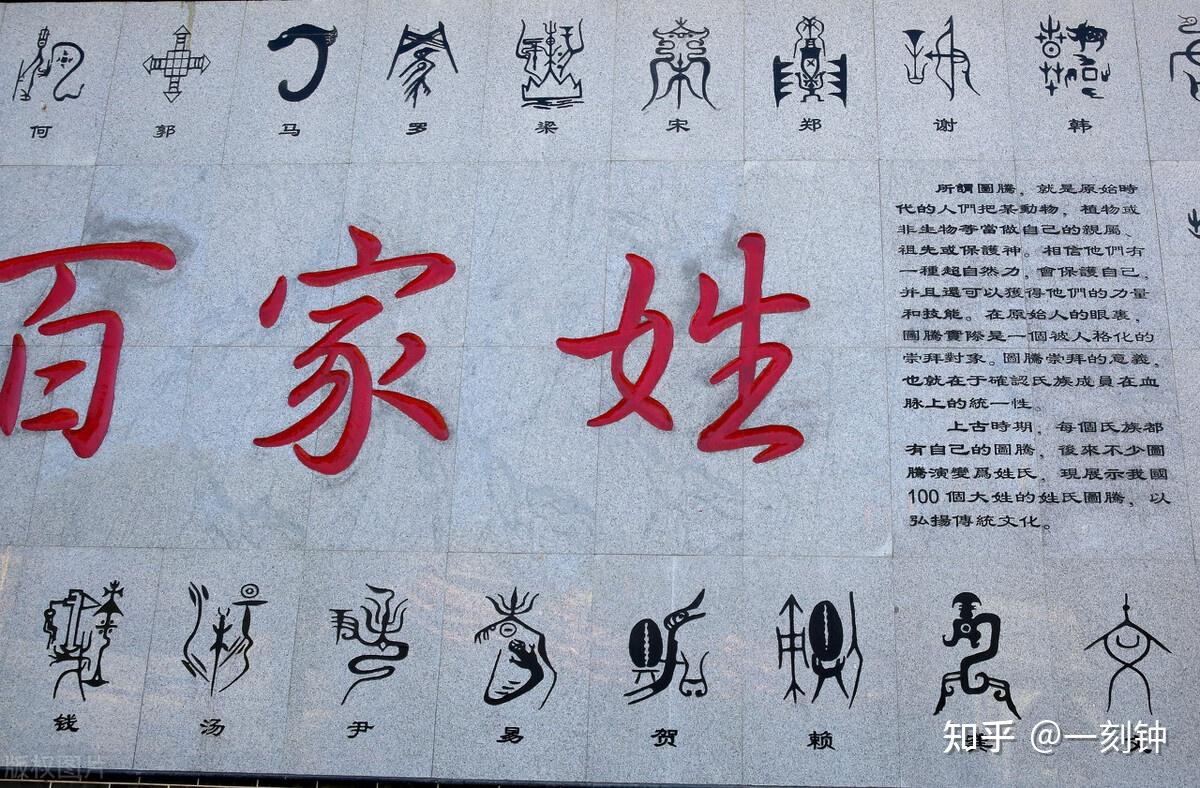 何 郭 马 罗 梁 宋 郑 谢 韩
百家姓
所謂圖騰，就是原始時
代的人們把某動物，植物或
非生物等當做自己的親屬、
祖先或保護神。相信他們有
一種超自然力，會保護自己，
并且還可以獲得他們的力量
和技能。在原始人的眼裏，
圖騰實際是一個被人格化的
崇拜對象。圖騰崇拜的意義，
也就在于確認氏族成員在血
脉上的統一性。
上古時期，每個氏族都
有自己的圖騰，後來不少圖
騰演變爲姓氏，現展示我國
100個大姓的姓氏圖騰，以
弘揚傳統文化。
钱 汤 尹 易 贺 赖
知乎 @一刻钟
版权图片